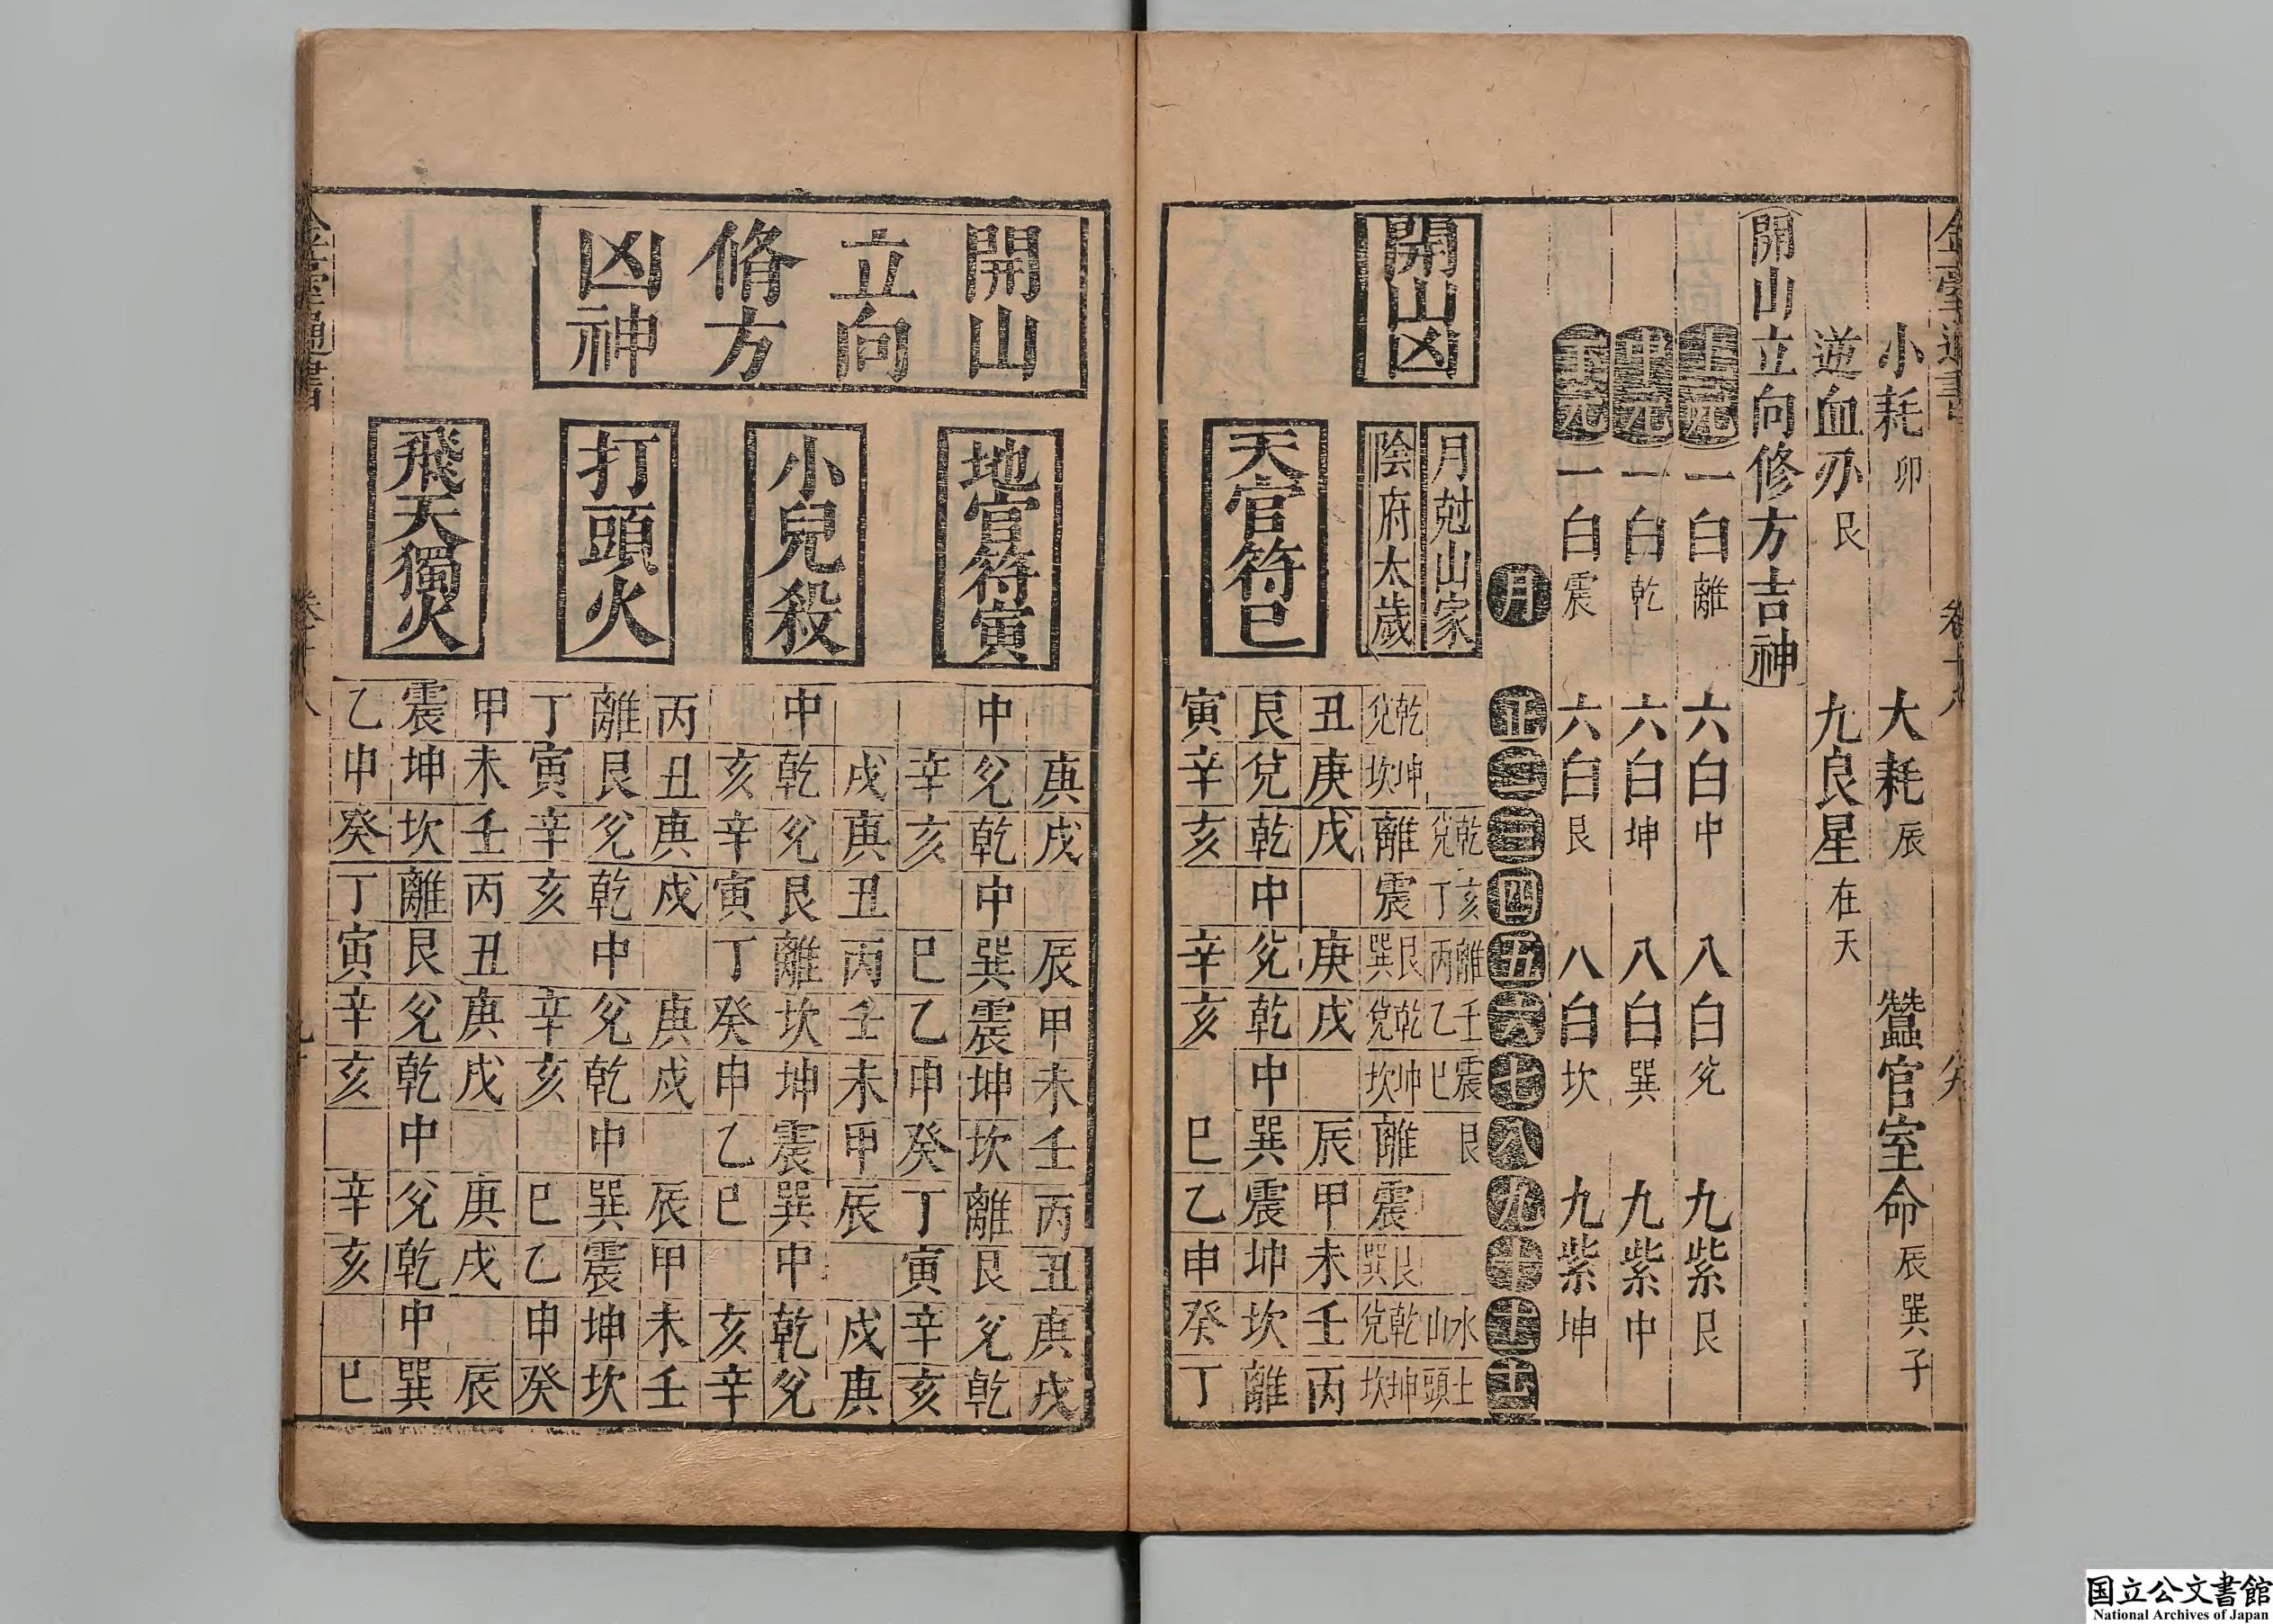 小耗卯　大耗辰　蠶官室命辰巽子
逆血刃艮　九良星在天
開山立向修方吉神
上元一白離　六白中　八白兊　九紫艮
中元一白乾　六白坤　八白巽　九紫中
下元一白震　六白艮　八白坎　九紫坤
月　正二三四五六七八九十十一十二
開山凶
月尅山家　乾兊　亥丁　離丙　壬乙　震巳　艮　水山　土頭
陰府太歲　乾兊　坤坎　離　震　艮巽　乾兊　坤坎　離　震　艮巽　乾兊　坤坎
丑庚戌　庚戌　辰甲未壬丙
天官符巳　艮兊乾中兊乾中巽震坤坎離
寅辛亥　辛亥　巳乙申癸丁
開山
立向
脩方
凶神
庚戌　辰甲未壬丙丑庚戌
地官符寅　中兊乾中巽震坤坎離艮兊乾
辛亥　巳乙申癸丁寅辛亥
戌庚丑丙壬未甲辰　戌庚
小兒殺　中乾兊艮離坎坤震巽中乾兊
亥辛寅丁癸申乙巳　亥辛
丙丑庚戌　庚戌　辰甲未壬
打頭火　離艮兊乾中兊乾中巽震坤坎
丁寅辛亥　辛亥　巳乙申癸
甲未壬丙丑庚戌　庚戌　辰
飛天獨火　震坤坎離艮兊乾中兊乾中巽
乙申癸丁寅辛亥　辛亥　巳
国立公文書館
National Archives of Japan